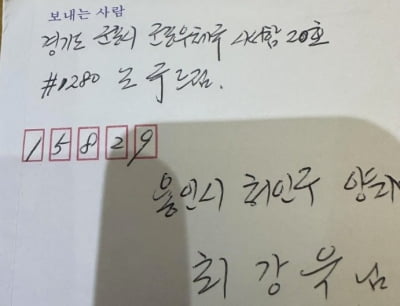 보내는 사람
경기도 군포시 군포우체국 사서함 20호
#1280 드림.
15829
용인시 처인구 양지
최강욱 님